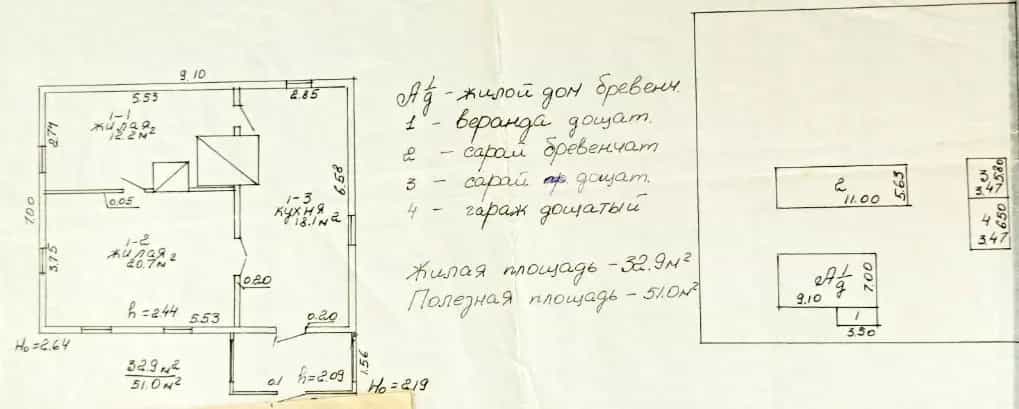 9.10
5.53
2.85
1-1
жилая
12.2м²
2.74
0.05
6.58
1-3
кухня
18.1м²
7.00
3.75
1-2
жилая
20.7м²
0.20
h=2.44
5.53
0.20
H₀=2.64
32.9м²
51.0м²
0.1
h=2.09
1.56
H₀=2.19
А 1/д - жилой дом бревенч.
1 - веранда дощат.
2 - сарай бревенчат
3 - сарай дощат.
4 - гараж дощатый
Жилая площадь - 32.9м²
Полезная площадь - 51.0м²
2
11.00
5.63
3
5.80
3.47
4
6.50
3.47
А 1/д
9.10
7.00
1
3.90